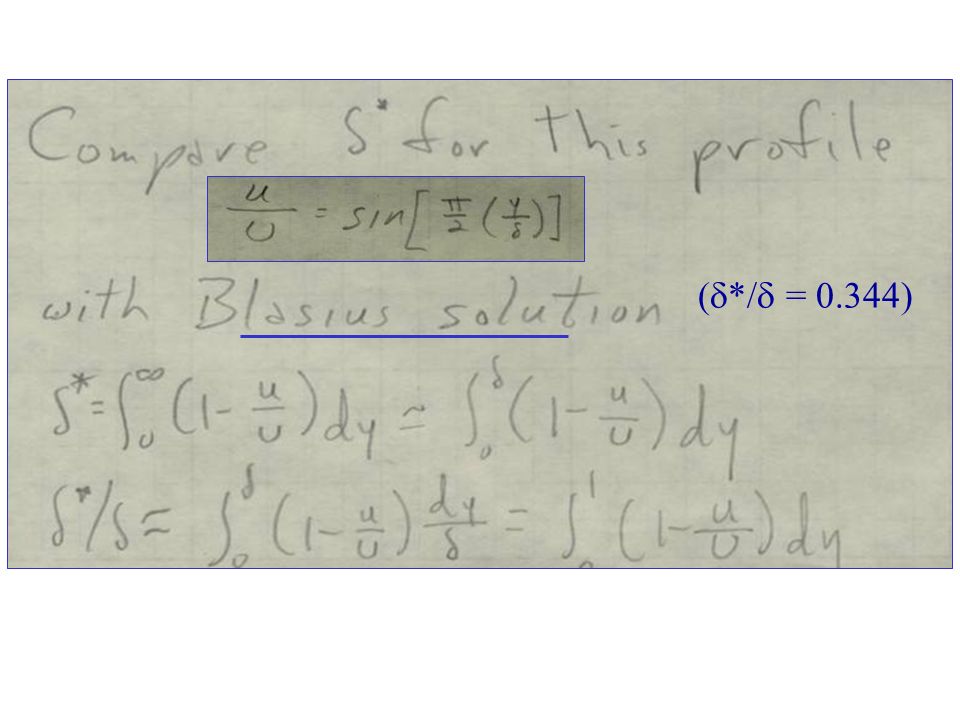 Compare δ* for this profile
u/U = sin[π/2 (y/δ)]
with Blasius solution (δ*/δ = 0.344)
δ* = ∫₀^∞ (1 - u/U) dy ≃ ∫₀^δ (1 - u/U) dy
δ*/δ ≃ ∫₀^δ (1 - u/U) dy/δ = ∫₀^1 (1 - u/U) dy